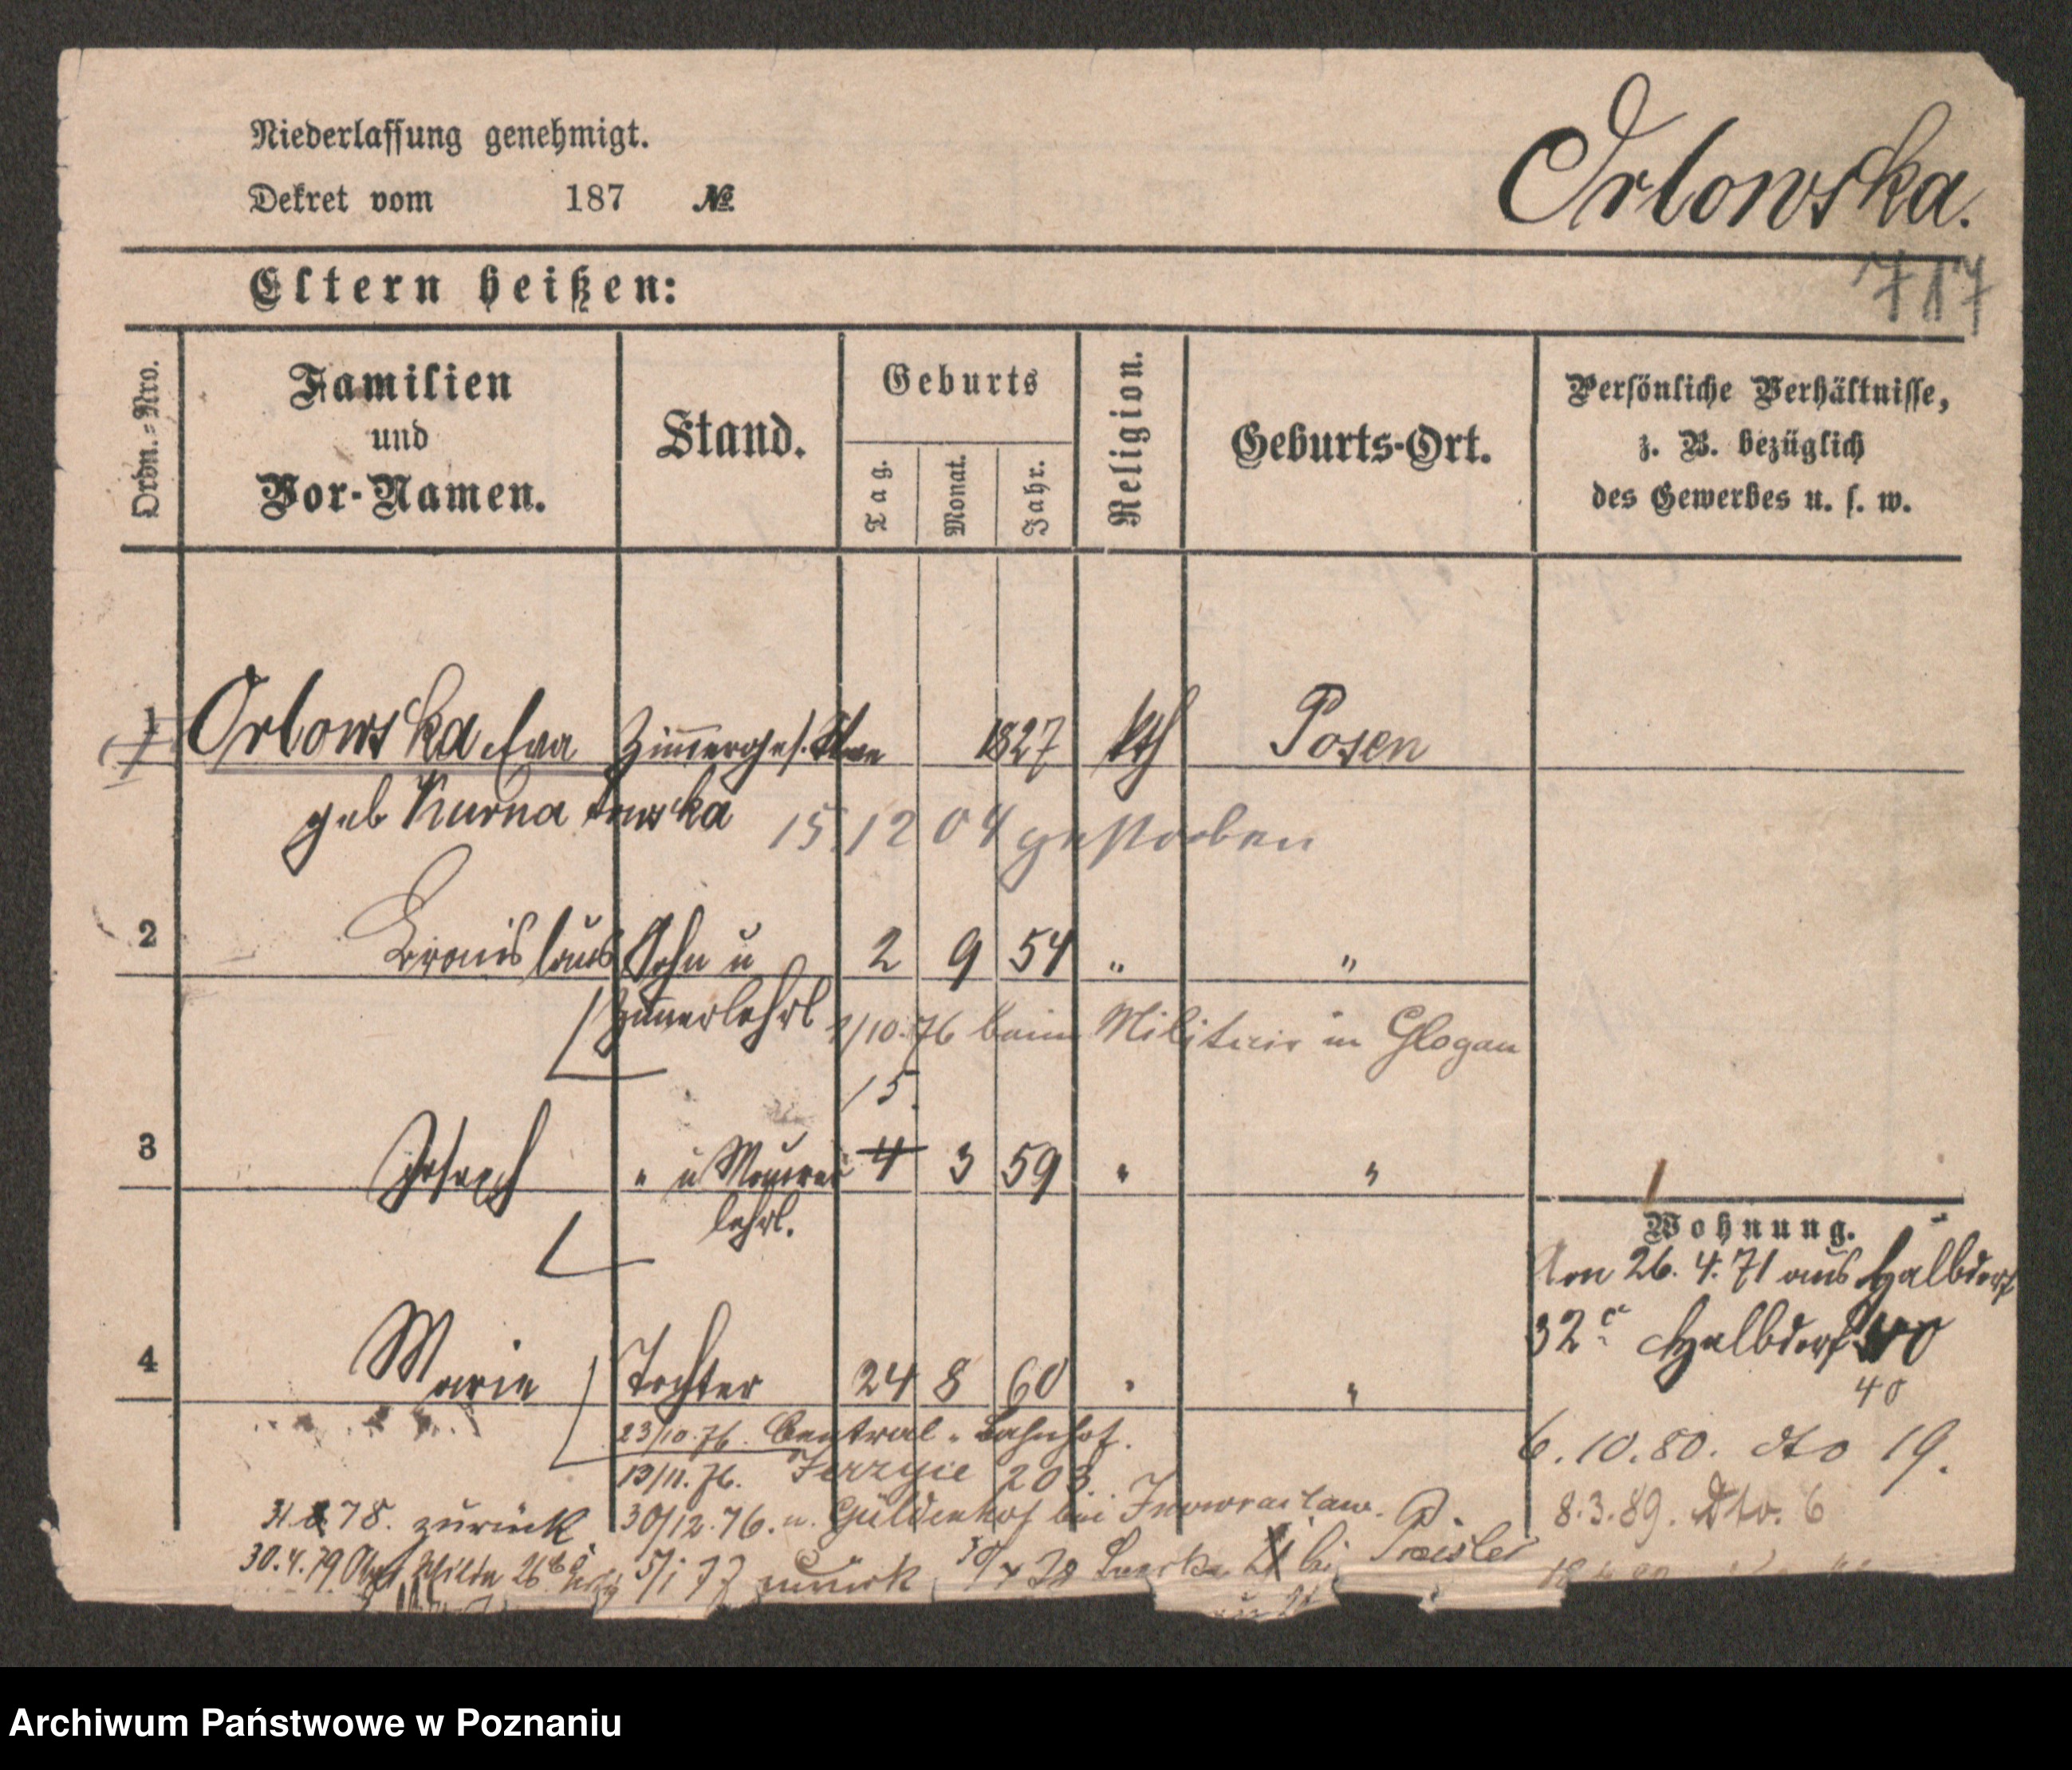 Niederlassung genehmigt.
Dekret vom 187 №
Orlowska.
717
Eltern heißen:
Ordn.-Nro.
Familien und Vor-Namen.
Stand.
Geburts
Tag.
Monat.
Jahr.
Religion.
Geburts-Ort.
Persönliche Verhältnisse,
z. B. bezüglich
des Gewerbes u. s. w.
1 Orlowska Eva Zimmerges. Wwe 1827 kth Posen
geb Kurnatowska 15 12 04 gestorben
2 Bronislaus Sohn u 2 9 54 " "
Zimerlehrl 1/10. 76 beim Militair in Glogau
15.
3 Joseph " u Maurer 4 3 59 " "
lehrl.
Wohnung.
Am 26. 4. 71 aus Halbdorf
32 Halbdorf
40
4 Marie Tochter 24 8 60 " "
23/10. 76. Central-Bahnhof.
6. 10. 80. dto 19.
13/11. 76. Jerzyce 208.
78. zurück 30/12. 76. n. Güldenhof bei Inowraclaw.
8. 3. 89. Dto. 6
30. 4. 79 Wilda 5/1 77 zurück bei
Archiwum Państwowe w Poznaniu